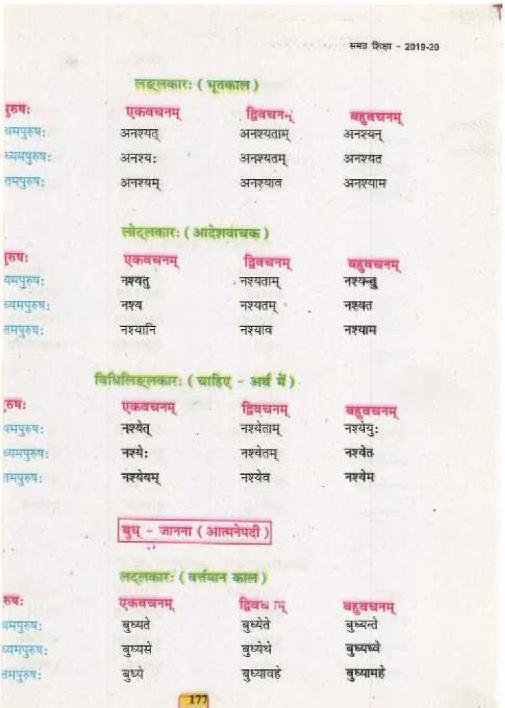 समग्र शिक्षा - 2019-20
लङ्लकारः ( भूतकाल )
पुरुषः एकवचनम् द्विवचनम् बहुवचनम्
थमपुरुषः अनश्यत् अनश्यताम् अनश्यन्
ध्यमपुरुषः अनश्यः अनश्यतम् अनश्यत
तमपुरुषः अनश्यम् अनश्याव अनश्याम
लोट्लकारः ( आदेशवाचक )
पुरुषः एकवचनम् द्विवचनम् बहुवचनम्
थमपुरुषः नश्यतु नश्यताम् नश्यन्तु
ध्यमपुरुषः नश्य नश्यतम् नश्यत
तमपुरुषः नश्यानि नश्याव नश्याम
विधिलिङ्लकारः ( चाहिए - अर्थ में )
रुषः एकवचनम् द्विवचनम् बहुवचनम्
थमपुरुषः नश्येत् नश्येताम् नश्येयुः
ध्यमपुरुषः नश्येः नश्येतम् नश्येत
तमपुरुषः नश्येयम् नश्येव नश्येम
बुध् - जानना ( आत्मनेपदी )
लट्लकारः ( वर्त्तमान काल )
रुषः एकवचनम् द्विवचनम् बहुवचनम्
थमपुरुषः बुध्यते बुध्येते बुध्यन्ते
ध्यमपुरुषः बुध्यसे बुध्येथे बुध्यध्वे
तमपुरुषः बुध्ये बुध्यावहे बुध्यामहे
177